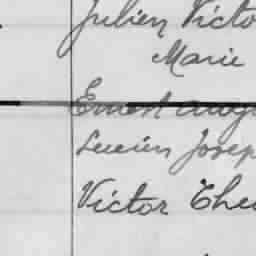 Julien Victo
Marie
Ernest Augu
Lucien Josep
Victor Theo